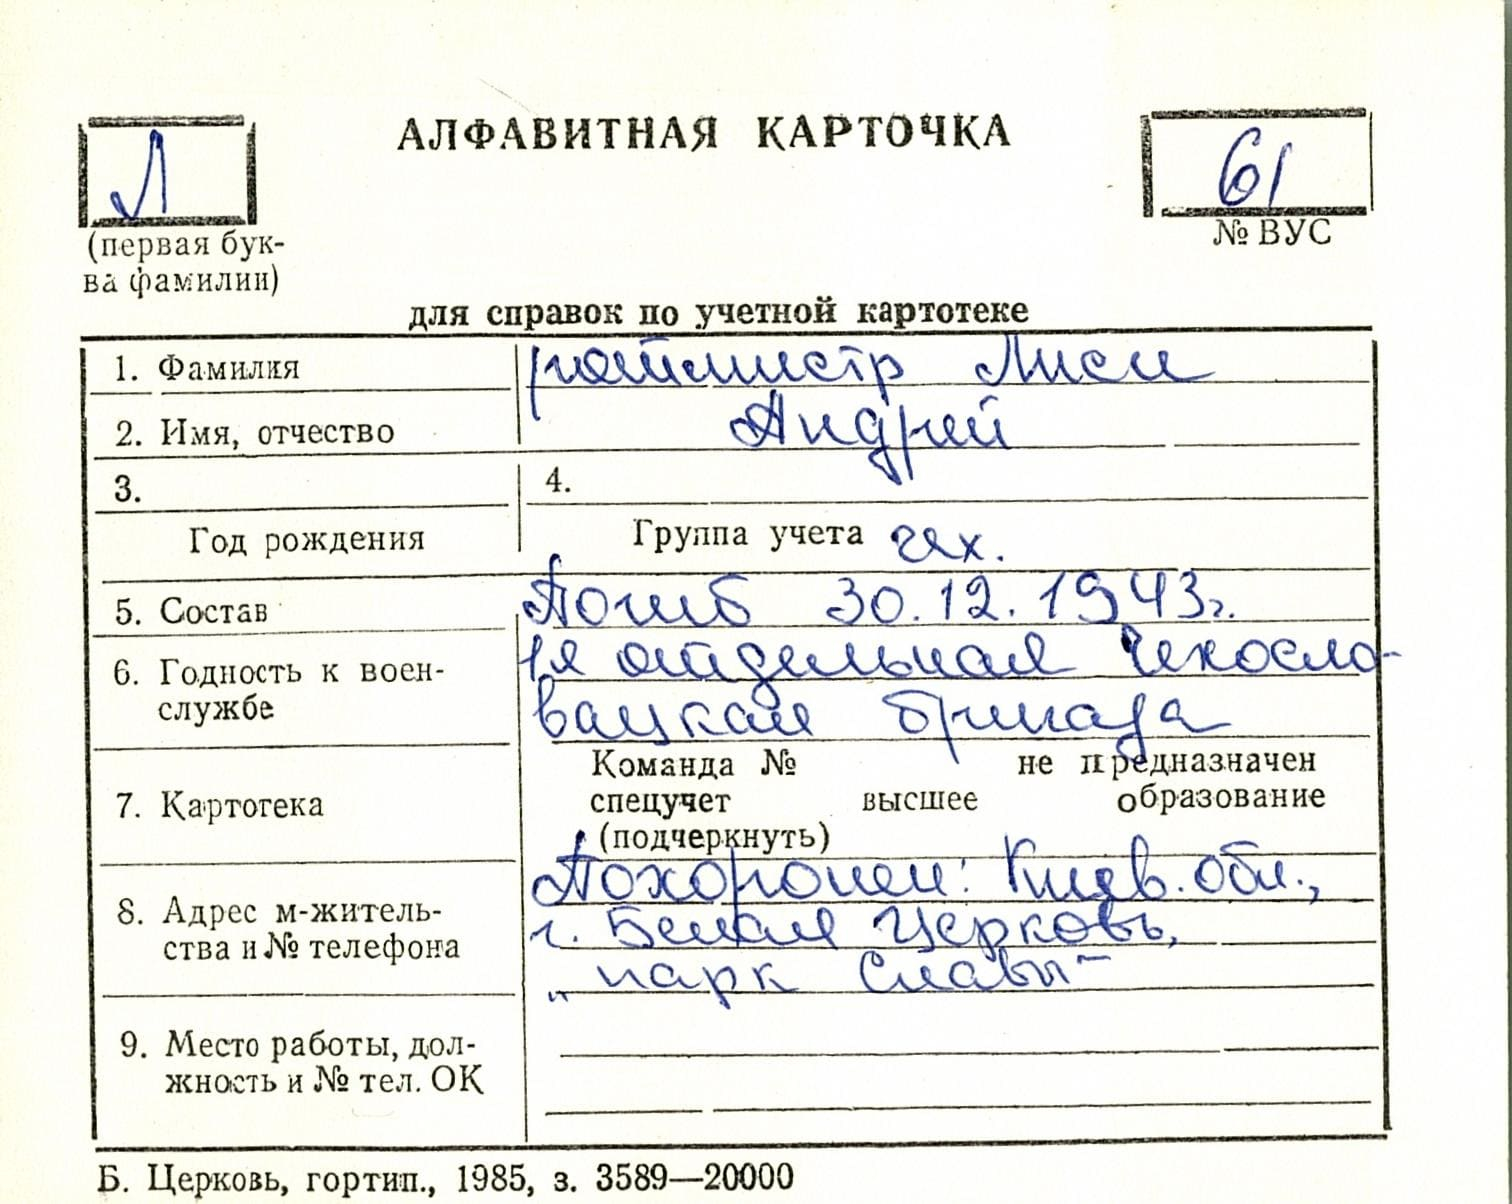 АЛФАВИТНАЯ КАРТОЧКА
Л
61
(первая бук-
ва фамилии)
№ ВУС
для справок по учетной картотеке
1. Фамилия ротмистр Лиси
2. Имя, отчество Андрей
3.
4.
Год рождения
Группа учета чех.
5. Состав Погиб 30.12.1943г.
6. Годность к воен-
службе
1я отдельная Чехосло-
вацкая бригада
7. Картотека
Команда № не предназначен
спецучет высшее образование
(подчеркнуть)
8. Адрес м-житель-
ства и № телефона
Похоронен: Киев. обл.,
г. Белая Церковь,
„парк Славы"
9. Место работы, дол-
жность и № тел. ОК
Б. Церковь, гортип., 1985, з. 3589—20000